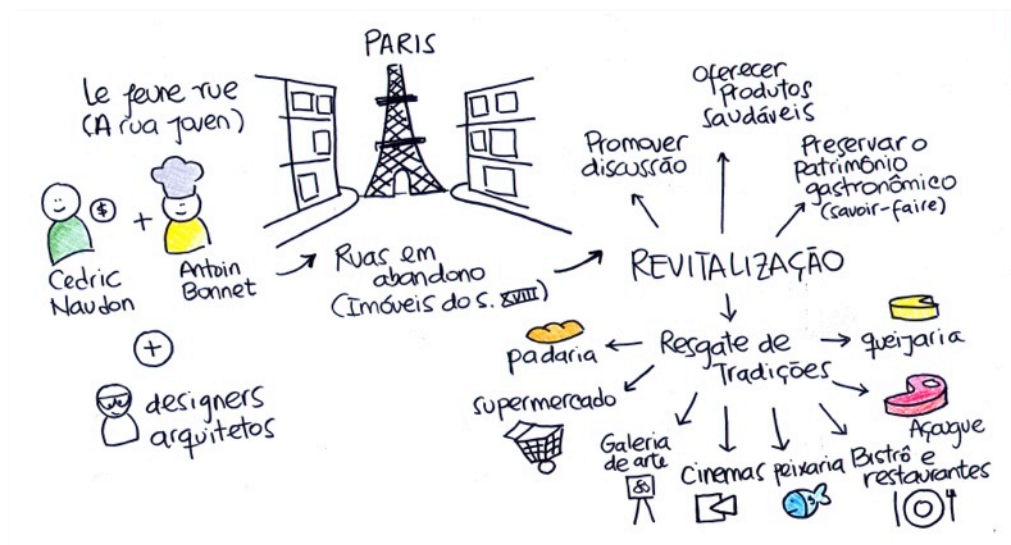 PARIS
Le jeune rue
(A rua joven)
$
+
Cedric
Naudon
Antoin
Bonnet
+
designers
arquitetos
Ruas em
abandono
(Imóveis do s. XVIII)
REVITALIZAÇÃO
Promover
discussão
Oferecer
Produtos
saudáveis
Preservar o
patrimônio
gastronômico
(savoir-faire)
Resgate de
Tradições
padaria
supermercado
Galeria
de arte
Cinemas
peixaria
Bistrô e
restaurantes
Açougue
queijaria